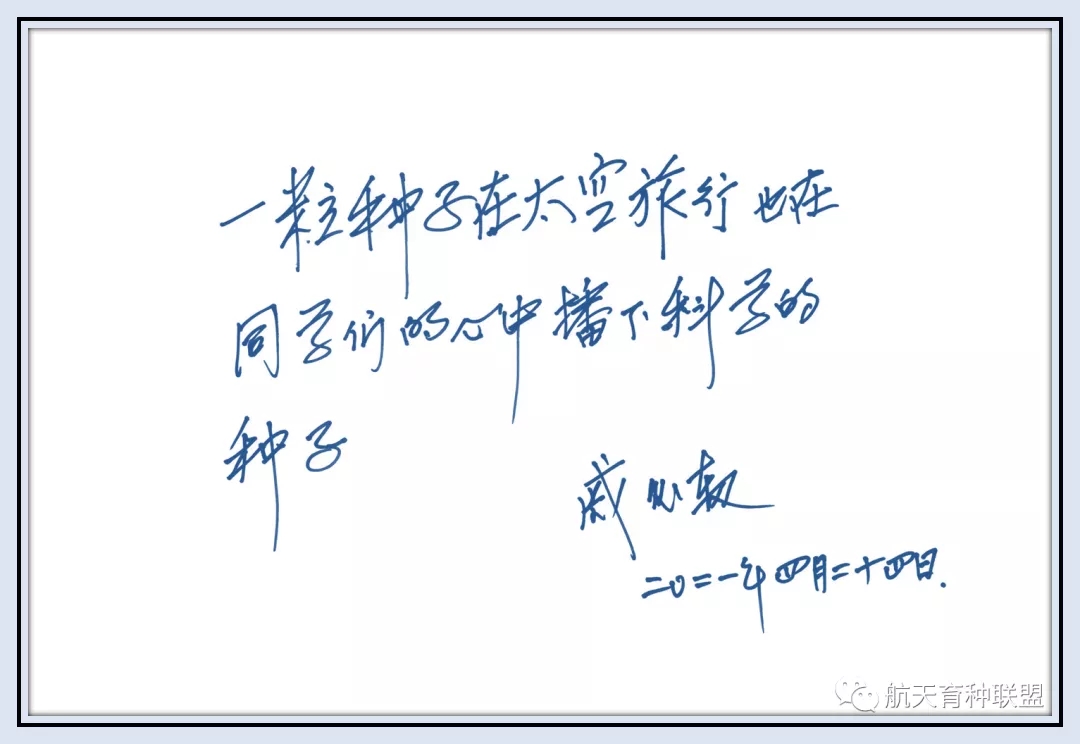 一粒种子在太空旅行也在
同学们的心中播下科学的
种子
戚发轫
二〇二一年四月二十四日.
航天育种联盟